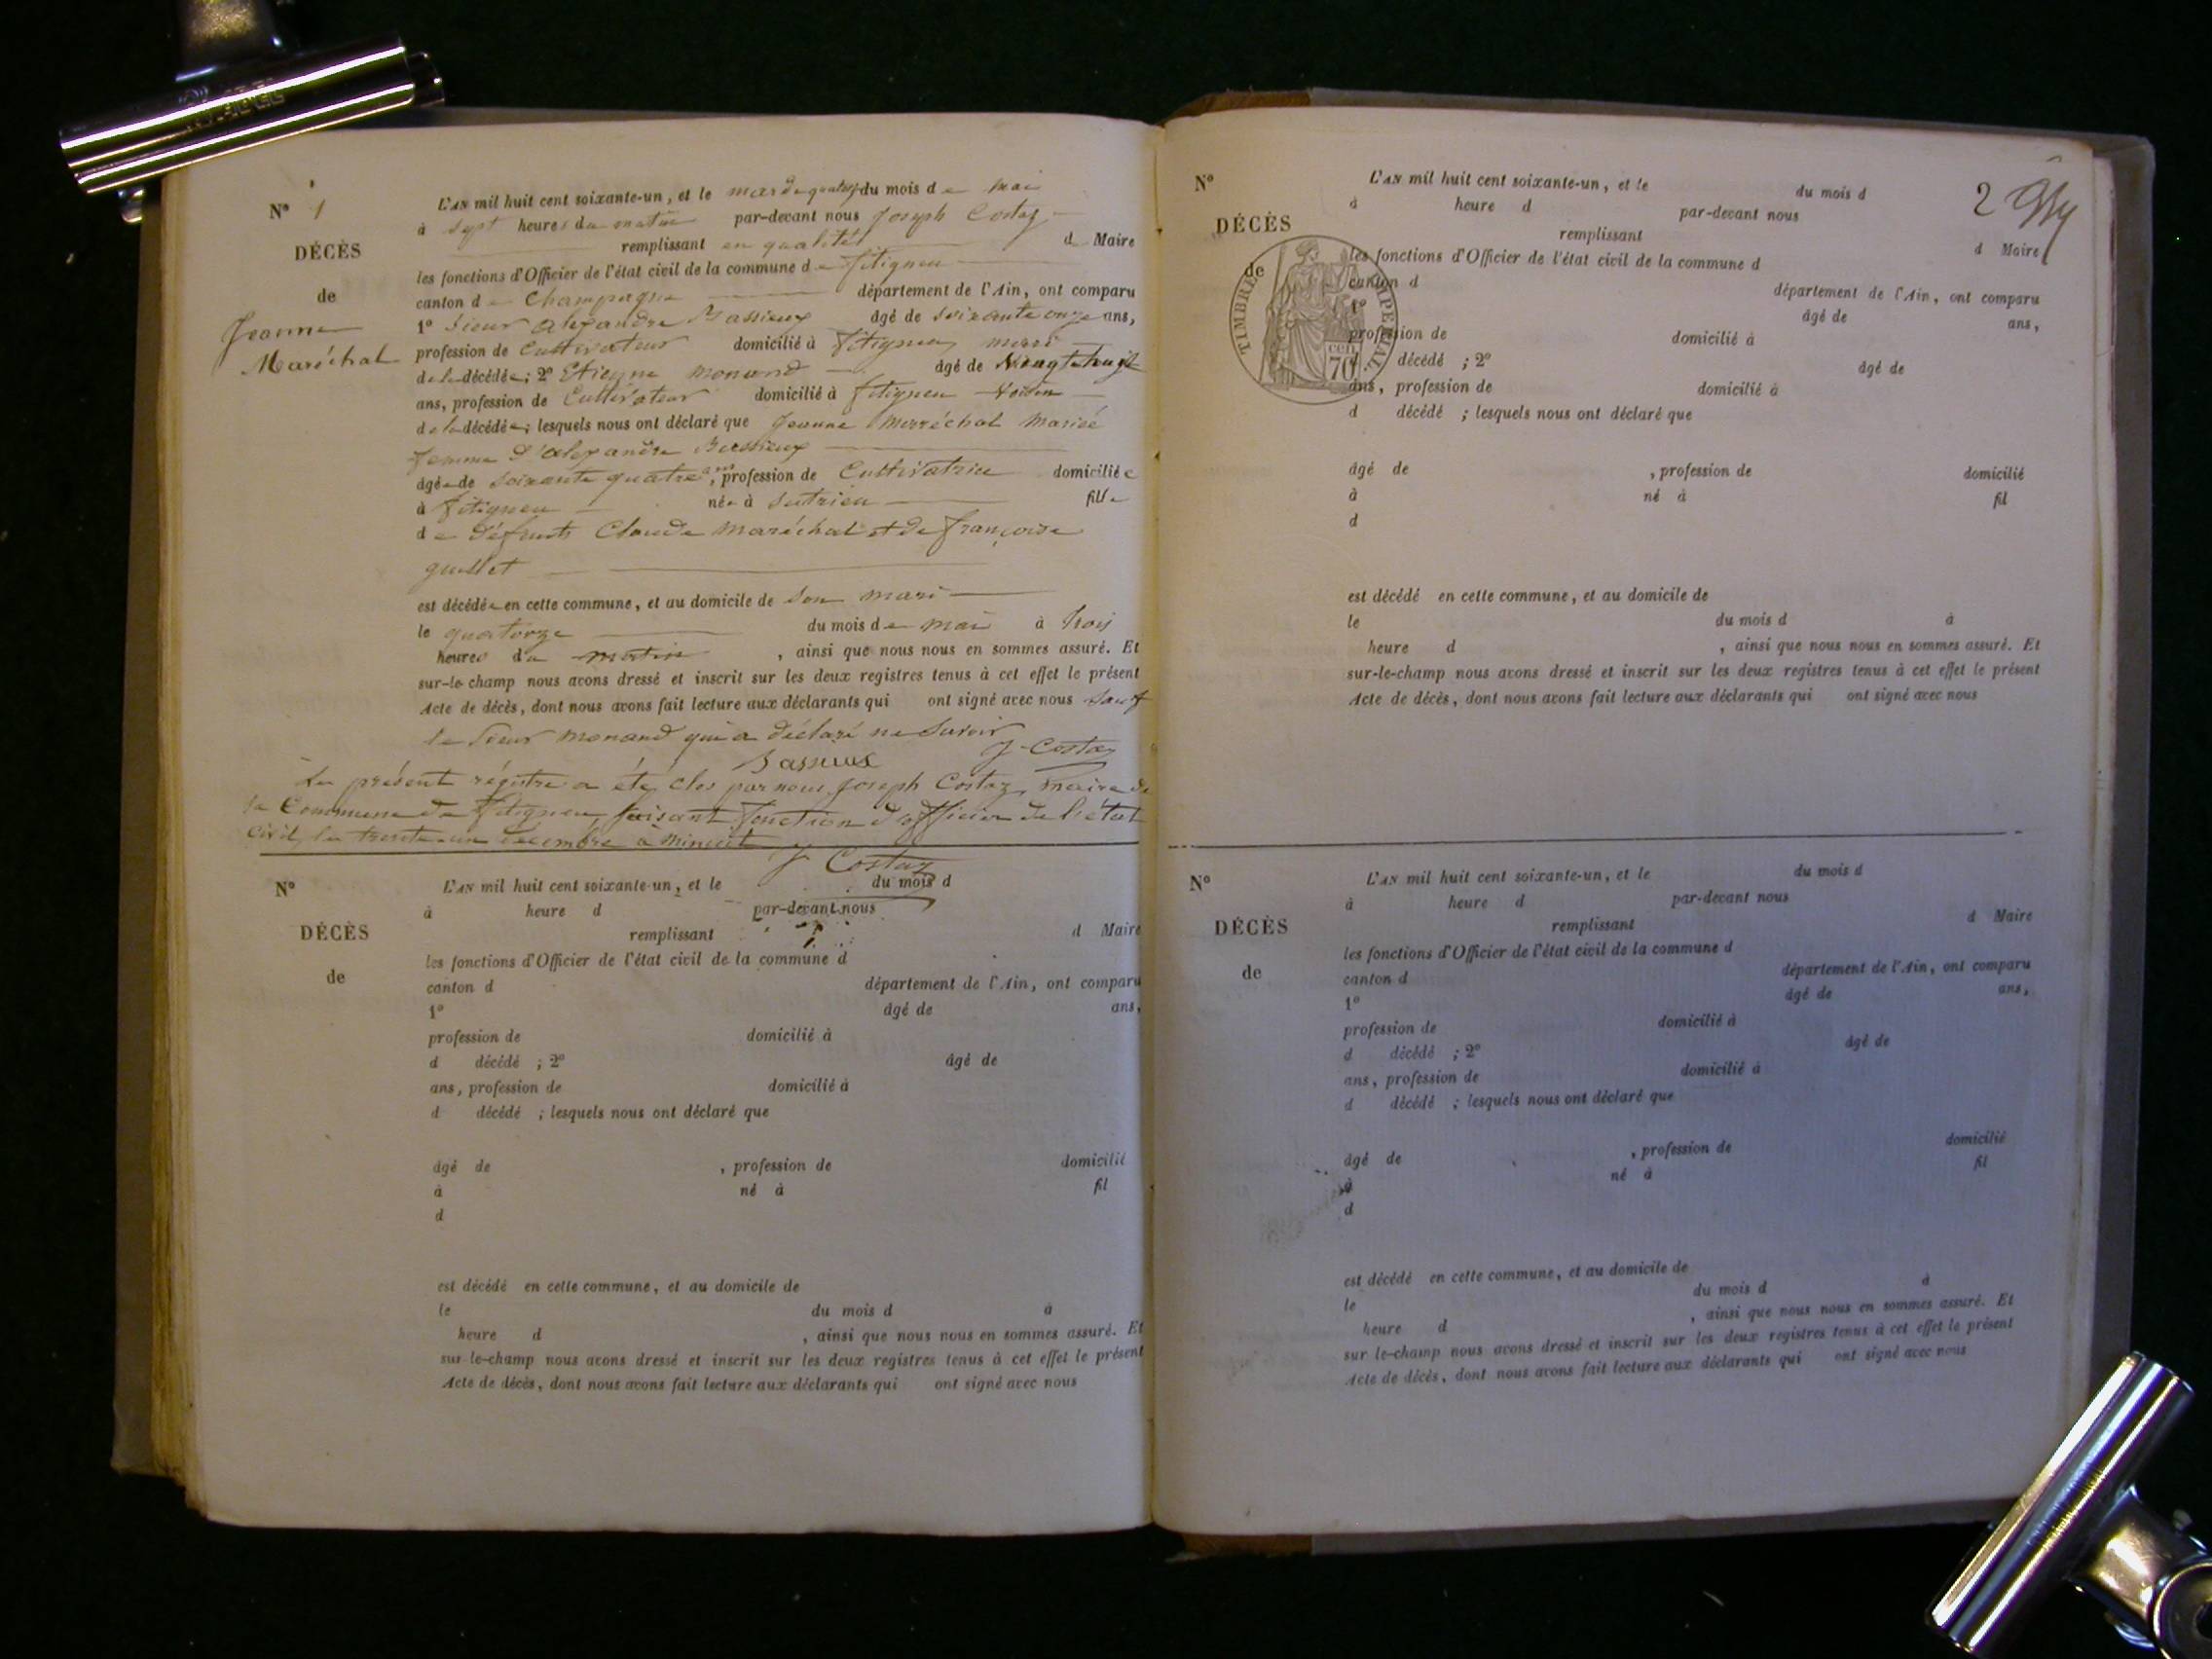 N° 1
DÉCÈS
de
Jeanne
Maréchal
L'AN mil huit cent soixante-un, et le mardi quatorze du mois de mai
à sept heures du matin par-devant nous Joseph Costaz
remplissant en qualité d Maire
les fonctions d'Officier de l'état civil de la commune de fitigneu
canton de Champagne département de l'Ain, ont comparu
1° Sieur alexandre Bassieux âgé de soixante onze ans,
profession de Cultivateur domicilié à fitigneu mari
de la décédée; 2° Etienne monand âgé de Vingt huit
ans, profession de Cultivateur domicilié à fitigneu Voisin
de la décédée; lesquels nous ont déclaré que Jeanne Marréchal mariée
femme d'alexandre Bassieux
âgée de soixante quatre ans, profession de Cultivatrice domiciliée
à fitigneu née à Sutrieu fille
de défunts Claude maréchal et de françoise
guillet
est décédée en cette commune, et au domicile de son mari
le quatorze du mois de mai à trois
heures du matin, ainsi que nous nous en sommes assuré. Et
sur-le-champ nous avons dressé et inscrit sur les deux registres tenus à cet effet le présent
Acte de décès, dont nous avons fait lecture aux déclarants qui ont signé avec nous sauf
le Sieur monand qui a déclaré ne Savoir
J Costaz
Bassieux
Le présent régistre a été clos par nous Joseph Costaz maire de
la Commune de fitigneu, faisant fonction d'officier de l'état
civil, le trente-un décembre à minuit
J Costaz
N°
DÉCÈS
de
L'AN mil huit cent soixante-un, et le du mois d
à heure d par-devant nous
remplissant d Maire
les fonctions d'Officier de l'état civil de la commune d
canton d département de l'Ain, ont comparu
1° âgé de ans,
profession de domicilié à
d décédé ; 2° âgé de
ans, profession de domicilié à
d décédé ; lesquels nous ont déclaré que
âgé de , profession de domicilié
à né à fil
d
est décédé en cette commune, et au domicile de
le du mois d à
heure d , ainsi que nous nous en sommes assuré. Et
sur-le-champ nous avons dressé et inscrit sur les deux registres tenus à cet effet le présent
Acte de décès, dont nous avons fait lecture aux déclarants qui ont signé avec nous
2
N°
DÉCÈS
de
TIMBRE IMPERIAL
cen
70
L'AN mil huit cent soixante-un, et le du mois d
à heure d par-devant nous
remplissant d Maire
les fonctions d'Officier de l'état civil de la commune d
canton d département de l'Ain, ont comparu
1° âgé de ans,
profession de domicilié à
d décédé ; 2° âgé de
ans, profession de domicilié à
d décédé ; lesquels nous ont déclaré que
âgé de , profession de domicilié
à né à fil
d
est décédé en cette commune, et au domicile de
le du mois d à
heure d , ainsi que nous nous en sommes assuré. Et
sur-le-champ nous avons dressé et inscrit sur les deux registres tenus à cet effet le présent
Acte de décès, dont nous avons fait lecture aux déclarants qui ont signé avec nous
N°
DÉCÈS
de
L'AN mil huit cent soixante-un, et le du mois d
à heure d par-devant nous
remplissant d Maire
les fonctions d'Officier de l'état civil de la commune d
canton d département de l'Ain, ont comparu
1° âgé de ans,
profession de domicilié à
d décédé ; 2° âgé de
ans, profession de domicilié à
d décédé ; lesquels nous ont déclaré que
âgé de , profession de domicilié
à né à fil
d
est décédé en cette commune, et au domicile de
le du mois d à
heure d , ainsi que nous nous en sommes assuré. Et
sur-le-champ nous avons dressé et inscrit sur les deux registres tenus à cet effet le présent
Acte de décès, dont nous avons fait lecture aux déclarants qui ont signé avec nous